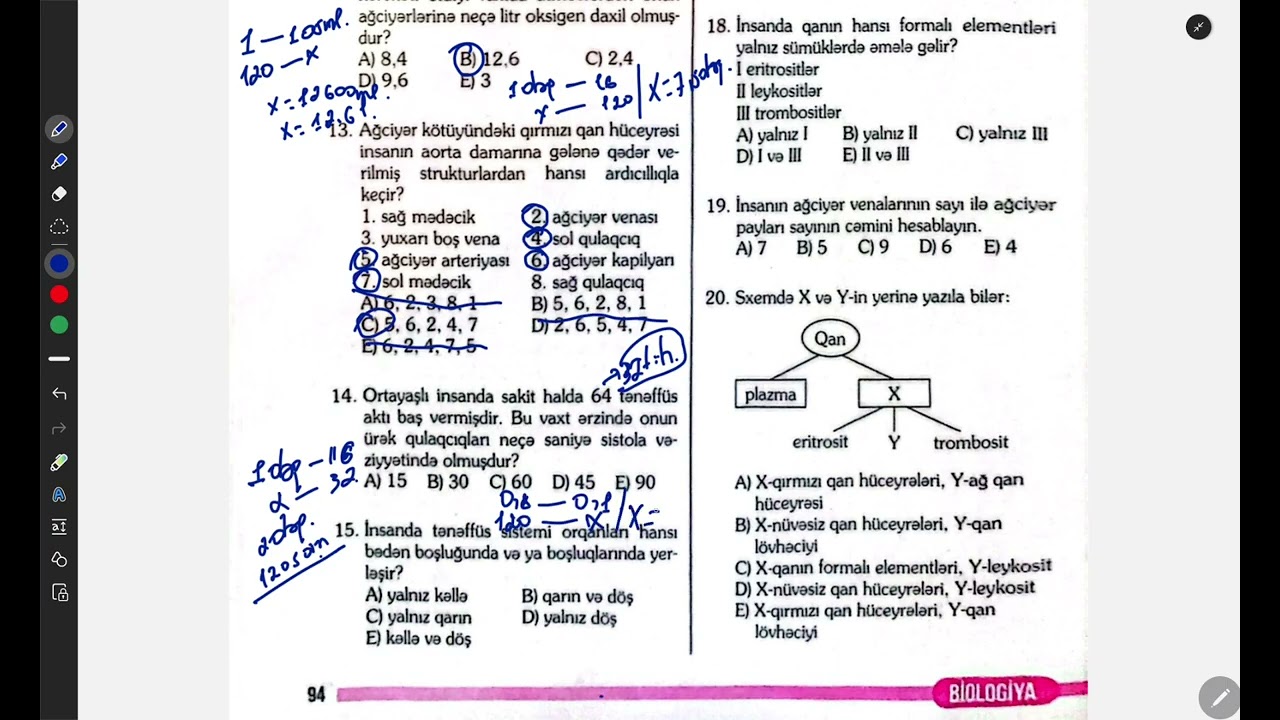 ağciyərlərinə neçə litr oksigen daxil olmuş-
dur?
A) 8,4 B) 12,6 C) 2,4
D) 9,6 E) 3
1 — 105ml.
120 — x
x=12600ml.
x=12,6l.
1dəq — 16
x — 120
13. Ağciyər kötüyündəki qırmızı qan hüceyrəsi
insanın aorta damarına gələnə qədər ve-
rilmiş strukturlardan hansı ardıcıllıqla
keçir?
1. sağ mədəcik 2. ağciyər venası
3. yuxarı boş vena 4. sol qulaqcıq
5. ağciyər arteriyası 6. ağciyər kapilyarı
7. sol mədəcik 8. sağ qulaqcıq
A) 6, 2, 3, 8, 1 B) 5, 6, 2, 8, 1
C) 5, 6, 2, 4, 7 D) 2, 6, 5, 4, 7
E) 6, 2, 4, 7, 5
14. Ortayaşlı insanda sakit halda 64 tənəffüs
aktı baş vermişdir. Bu vaxt ərzində onun
ürək qulaqcıqları neçə saniyə sistola və-
ziyyətində olmuşdur?
A) 15 B) 30 C) 60 D) 45 E) 90
1dəq — 16
x — 32
2dəq.
120san
0,8 — 0,1
120 — x / x=
15. İnsanda tənəffüs sistemi orqanları hansı
bədən boşluğunda və ya boşluqlarında yer-
ləşir?
A) yalnız kəllə B) qarın və döş
C) yalnız qarın D) yalnız döş
E) kəllə və döş
94
18. İnsanda qanın hansı formalı elementləri
yalnız sümüklərdə əmələ gəlir?
I eritrositlər
II leykositlər
III trombositlər
A) yalnız I B) yalnız II C) yalnız III
D) I və III E) II və III
19. İnsanın ağciyər venalarının sayı ilə ağciyər
payları sayının cəmini hesablayın.
A) 7 B) 5 C) 9 D) 6 E) 4
20. Sxemdə X və Y-in yerinə yazıla bilər:
Qan
plazma X
eritrosit Y trombosit
A) X-qırmızı qan hüceyrələri, Y-ağ qan
hüceyrəsi
B) X-nüvəsiz qan hüceyrələri, Y-qan
lövhəciyi
C) X-qanın formalı elementləri, Y-leykosit
D) X-nüvəsiz qan hüceyrələri, Y-leykosit
E) X-qırmızı qan hüceyrələri, Y-qan
lövhəciyi
BİOLOGİYA